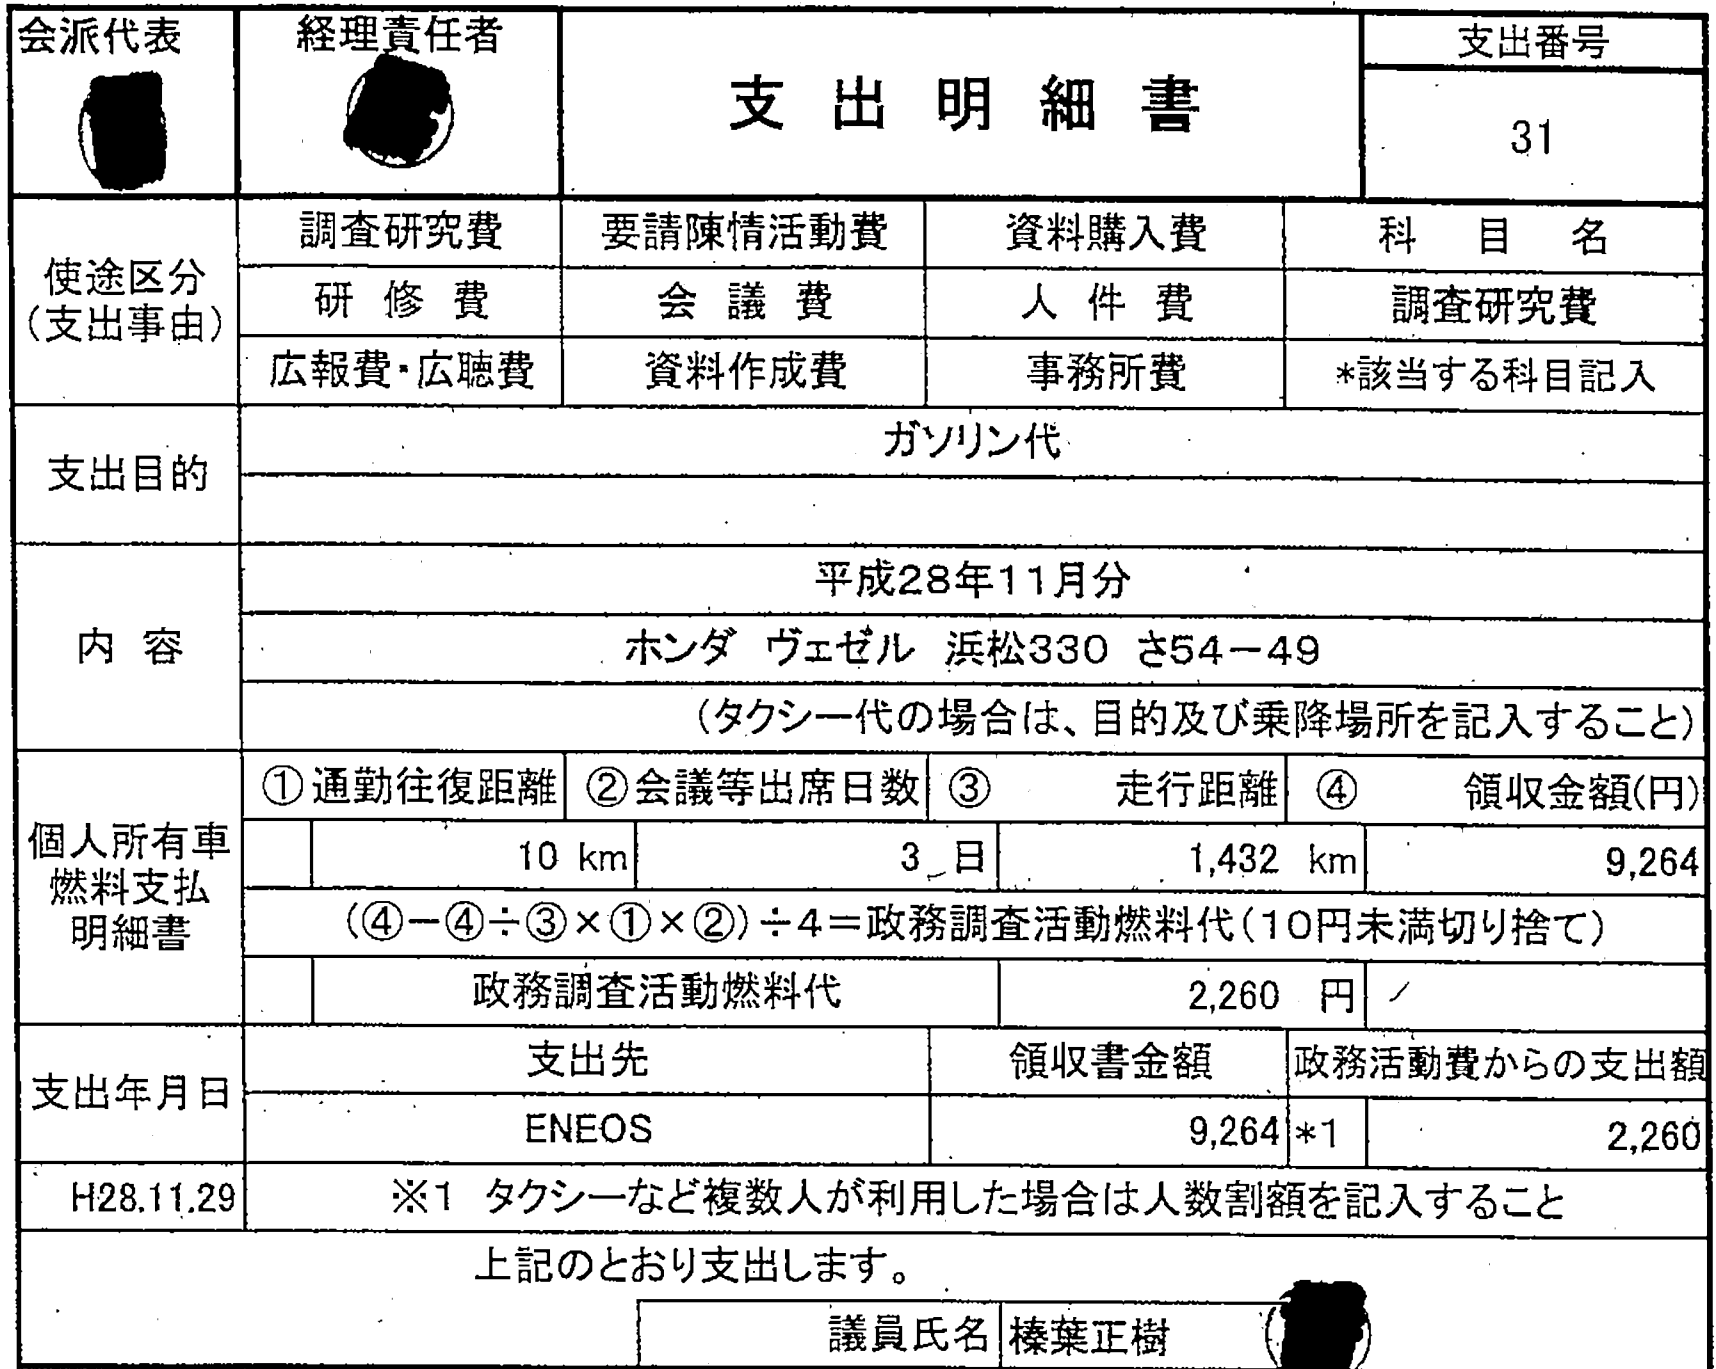 会派代表
経理責任者
支出明細書
支出番号
31
使途区分
(支出事由)
調査研究費 要請陳情活動費 資料購入費 科目名
研修費 会議費 人件費 調査研究費
広報費・広聴費 資料作成費 事務所費 *該当する科目記入
支出目的
ガソリン代
内容
平成28年11月分
ホンダ ヴェゼル 浜松330 さ54-49
(タクシー代の場合は、目的及び乗降場所を記入すること)
個人所有車
燃料支払
明細書
①通勤往復距離 ②会議等出席日数 ③ 走行距離 ④ 領収金額(円)
10 km 3 日 1,432 km 9,264
(④-④÷③×①×②)÷4=政務調査活動燃料代(10円未満切り捨て)
政務調査活動燃料代 2,260 円
支出年月日
支出先 領収書金額 政務活動費からの支出額
ENEOS 9,264 *1 2,260
H28.11.29 ※1 タクシーなど複数人が利用した場合は人数割額を記入すること
上記のとおり支出します。
議員氏名 榛葉正樹